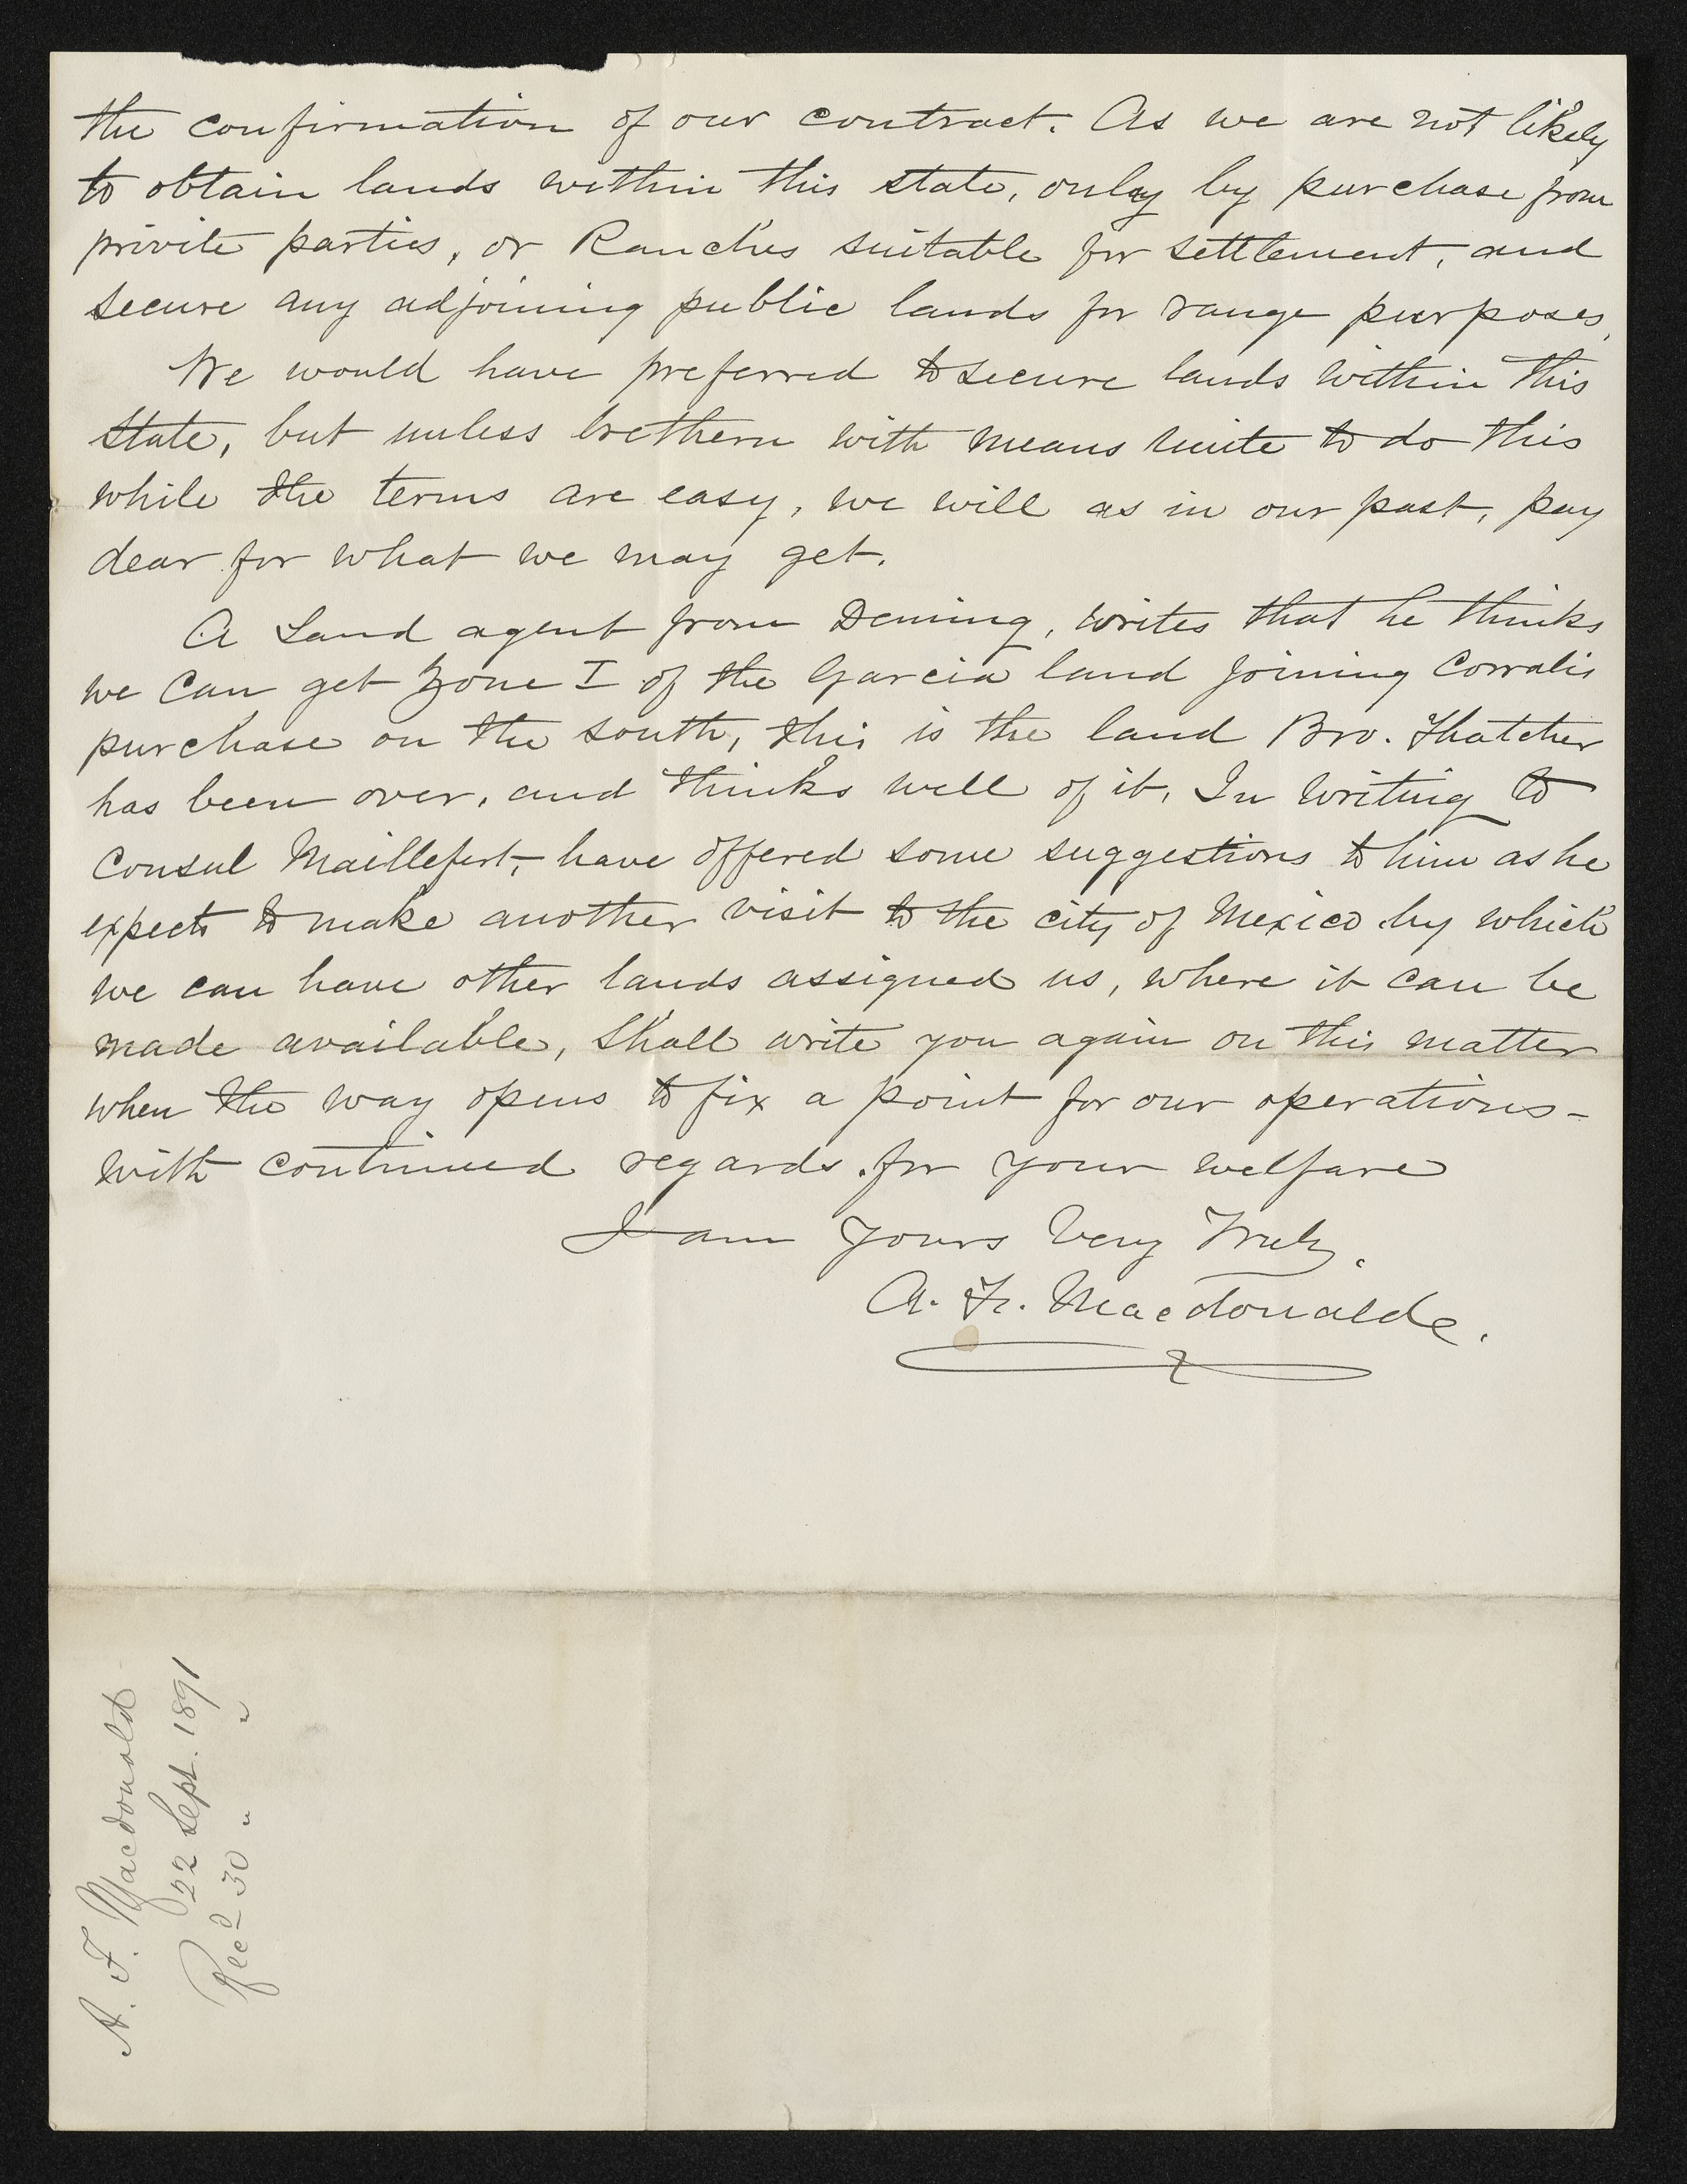 the confirmation of our contract. As we are not likely
to obtain lands within this state, only by purchase from
privite parties, or Ranches suitable for settlement, and
secure any adjoining public lands for range purposes,
We would have preferred to secure lands within this
State, but unless brethern with means unite to do this
while the terms are easy, we will as in our past, pay
dear for what we may get.
A Land agent from Deming, writes that he thinks
we can get Zone I of the Garcia land joining Corralis
purchase on the south, this is the land Bro. Thatcher
has been over, and thinks well of it, In writing to
Consul Maillefert, have offered some suggestions to him as he
expects to make another visit to the city of Mexico by which
we can have other lands assigned us, where it can be
made available, Shall write you again on this matter
when the way opens to fix a point for our operations-
with continued regards for your welfare
I am Yours Very Truly.
A. F. Macdonald.
A. F. Macdonald
22 Sept. 1891
Recd 30 " "